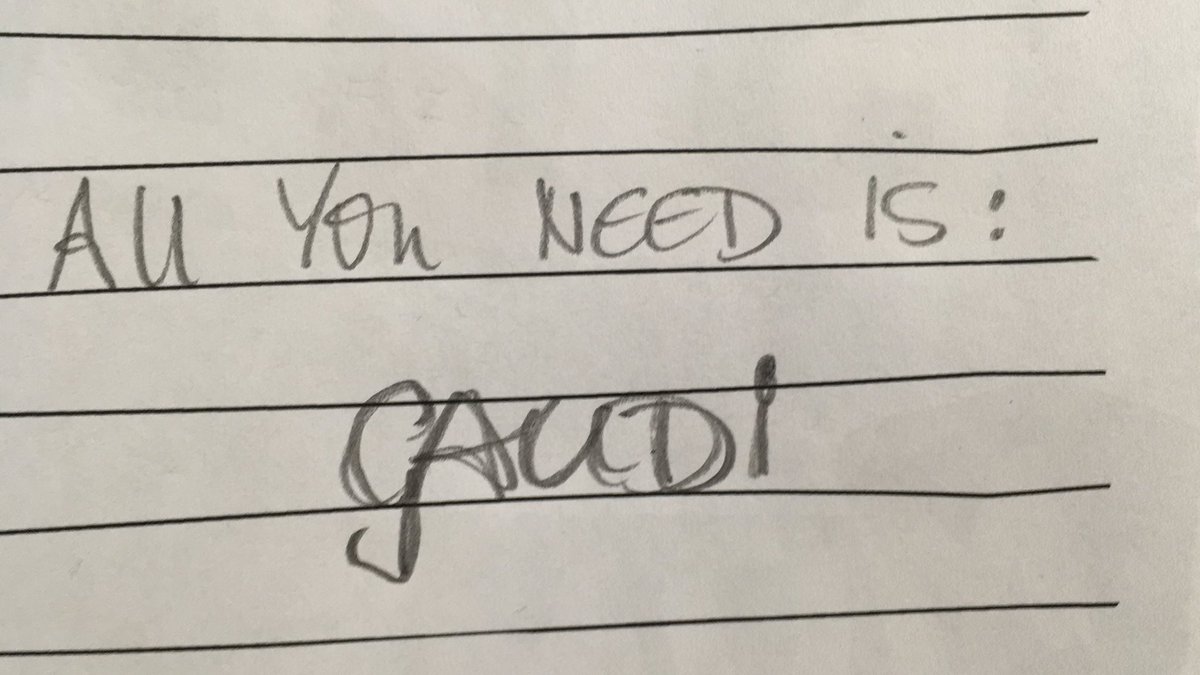 All YOu NEED IS:
GAUDI